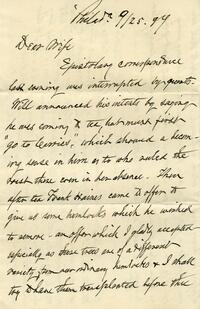 Philada 9/25. 99
Dear Wife
Epistolary correspondence
last evening was interrupted by guests.
Will announced his intents by saying
he was coming to tea, but must first
"go to Carries", which showed a becom-
ing sense in him as to who ruled the
roost there even in her absence. Then
after tea Frank Haines came to offer to
give us some hemlocks which he wished
to remove - an offer which I gladly accepted
especially as these trees are of a different
variety from our ordinary hemlocks & I shall
try to have them transplanted before the